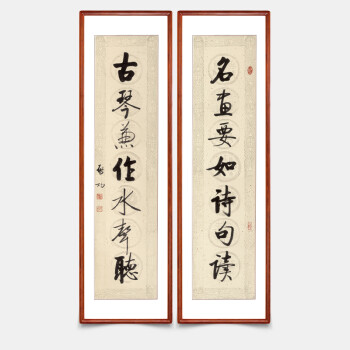 名画要如诗句读
古琴兼作水声聽
启功